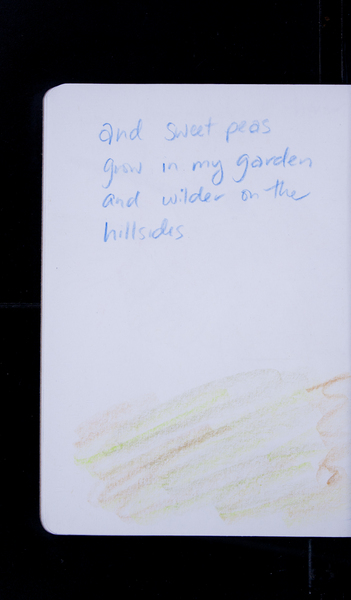 and sweet peas
grow in my garden
and wilder on the
hillsides